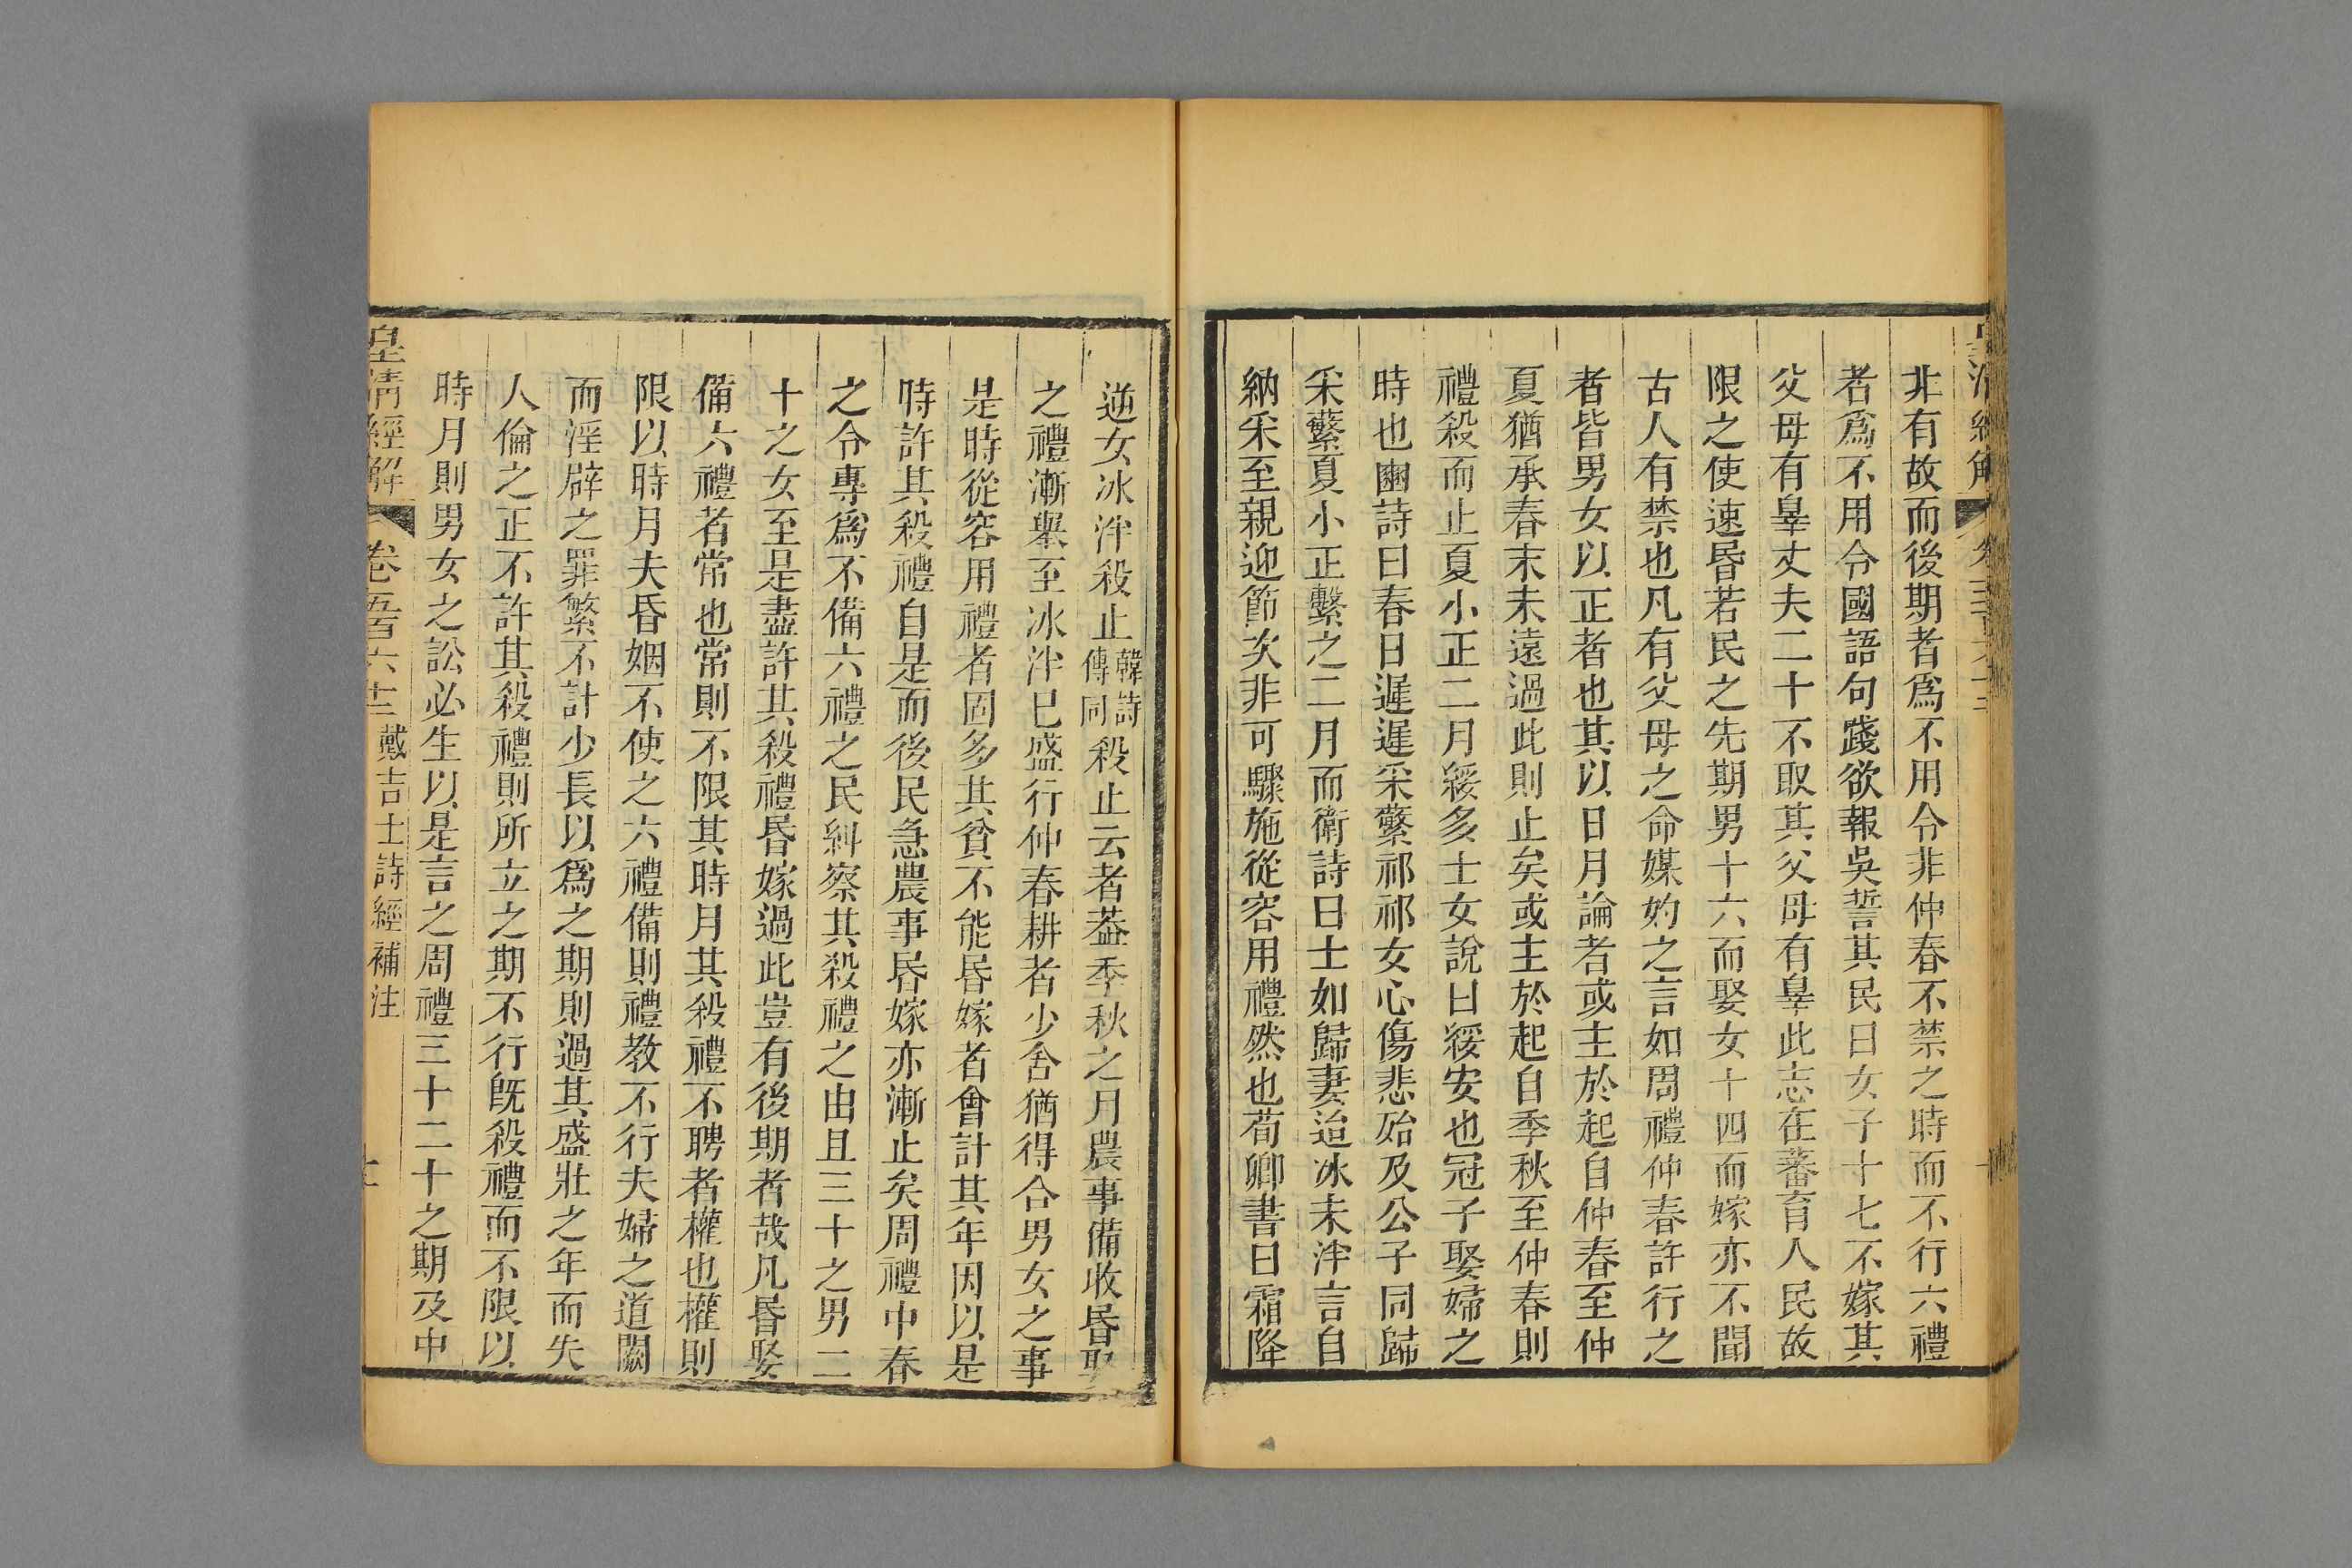 非有故而後期者爲不用令非仲春不禁之時而不行六禮
者爲不用令國語句踐欲報吳誓其民曰女子十七不嫁其
父母有辠丈夫二十不取其父母有辠此志在蕃育人民故
限之使速昏若民之先期男十六而娶女十四而嫁亦不聞
古人有禁也凡有父母之命媒妁之言如周禮仲春許行之
者皆男女以正者也其以日月論者或主於起自仲春至仲
夏猶承春末未遠過此則止矣或主於起自季秋至仲春則
禮殺而止夏小正二月綏多士女說曰綏安也冠子娶婦之
時也豳詩曰春日遲遲采蘩祁祁女心傷悲殆及公子同歸
采蘩夏小正繫之二月而衛詩曰士如歸妻迨冰未泮言自
納采至親迎節次非可驟施從容用禮然也荀卿書曰霜降
逆女冰泮殺止韓詩傳同殺止云者葢季秋之月農事備收昏娶
之禮漸舉至冰泮已盛行仲春耕者少舍猶得合男女之事
是時從容用禮者固多其貧不能昏嫁者會計其年因以是
時許其殺禮自是而後民急農事昏嫁亦漸止矣周禮中春
之令專爲不備六禮之民糾察其殺禮之由且三十之男二
十之女至是盡許其殺禮昏嫁過此豈有後期者哉凡昏娶
備六禮者常也常則不限其時月其殺禮不聘者權也權則
限以時月夫昏姻不使之六禮備則禮教不行夫婦之道闕
而淫辟之罪繁不計少長以爲之期則過其盛壯之年而失
人倫之正不許其殺禮則所立之期不行旣殺禮而不限以
時月則男女之訟必生以是言之周禮三十二十之期及中
皇清經解 卷五百六十三 戴吉士詩經補注